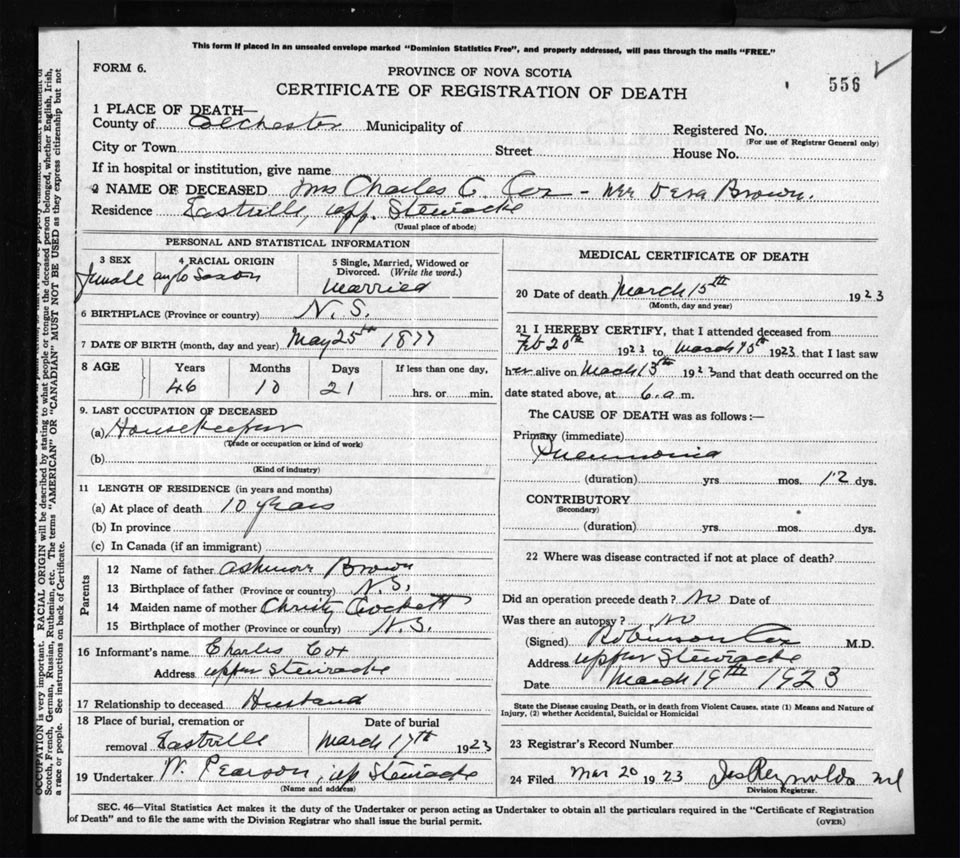 This form if placed in an unsealed envelope marked "Dominion Statistics Free", and properly addressed, will pass through the mails "FREE."
FORM 6.
PROVINCE OF NOVA SCOTIA
556
CERTIFICATE OF REGISTRATION OF DEATH
1 PLACE OF DEATH—
County of Colchester Municipality of
Registered No.
(For use of Registrar General only)
City or Town Street House No.
If in hospital or institution, give name
2 NAME OF DECEASED Mrs Charles C. Cox - nee Vera Brown.
Residence Eastville, upp. Stewiacke
(Usual place of abode)
PERSONAL AND STATISTICAL INFORMATION
3 SEX 4 RACIAL ORIGIN 5 Single, Married, Widowed or Divorced. (Write the word.)
Female anglo Saxon married
6 BIRTHPLACE (Province or country) N.S.
7 DATE OF BIRTH (month, day and year) May 25th 1877
8 AGE Years Months Days If less than one day,
46 10 21 hrs. or min.
9. LAST OCCUPATION OF DECEASED
(a) Housekeeper
(Trade or occupation or kind of work)
(b)
(Kind of industry)
11 LENGTH OF RESIDENCE (in years and months)
(a) At place of death 10 years
(b) In province
(c) In Canada (if an immigrant)
Parents
12 Name of father Ashmore Brown
13 Birthplace of father (Province or country) N.S.
14 Maiden name of mother Christy Crockett
15 Birthplace of mother (Province or country) N.S.
16 Informant's name Charles Cox
Address upper Stewiacke
17 Relationship to deceased Husband
18 Place of burial, cremation or removal Eastville
Date of burial
March 17th 1923
19 Undertaker W. Pearson, up Stewiacke
(Name and address)
MEDICAL CERTIFICATE OF DEATH
20 Date of death March 15th 1923
(Month, day and year)
21 I HEREBY CERTIFY, that I attended deceased from
Feb 20th 1923 to March 15th 1923 that I last saw
her alive on March 13th 1923 and that death occurred on the
date stated above, at 6 a m.
The CAUSE OF DEATH was as follows :—
Primary (immediate)
Pneumonia
(duration) yrs mos. 12 dys.
CONTRIBUTORY
(Secondary)
(duration) yrs. mos. dys.
22 Where was disease contracted if not at place of death?
Did an operation precede death ? No Date of
Was there an autopsy ? No
(Signed) Robinson Cox M.D.
Address upper Stewiacke
Date March 19th 1923
State the Disease causing Death, or in death from Violent Causes, state (1) Means and Nature of
Injury, (2) whether Accidental, Suicidal or Homicidal
23 Registrar's Record Number
24 Filed Mar 20 1923 Jas Reynolds
Division Registrar.
SEC. 46—Vital Statistics Act makes it the duty of the Undertaker or person acting as Undertaker to obtain all the particulars required in the "Certificate of Registration
of Death" and to file the same with the Division Registrar who shall issue the burial permit.
(OVER)
OCCUPATION is very important. RACIAL ORIGIN will be described by stating to what people or tongue the deceased person belonged, whether English, Irish,
Scotch, French, German, Russian, Ruthenian, etc. The terms "AMERICAN" OR "CANADIAN" MUST NOT BE USED as they express citizenship but not
a race or people. See instructions on back of Certificate.